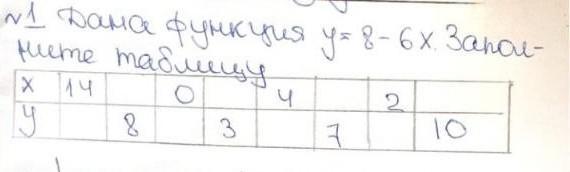 №1 Дана функция y = 8 - 6x. Запол-
ните таблицу
x 14 0 4 2
y 8 3 7 10